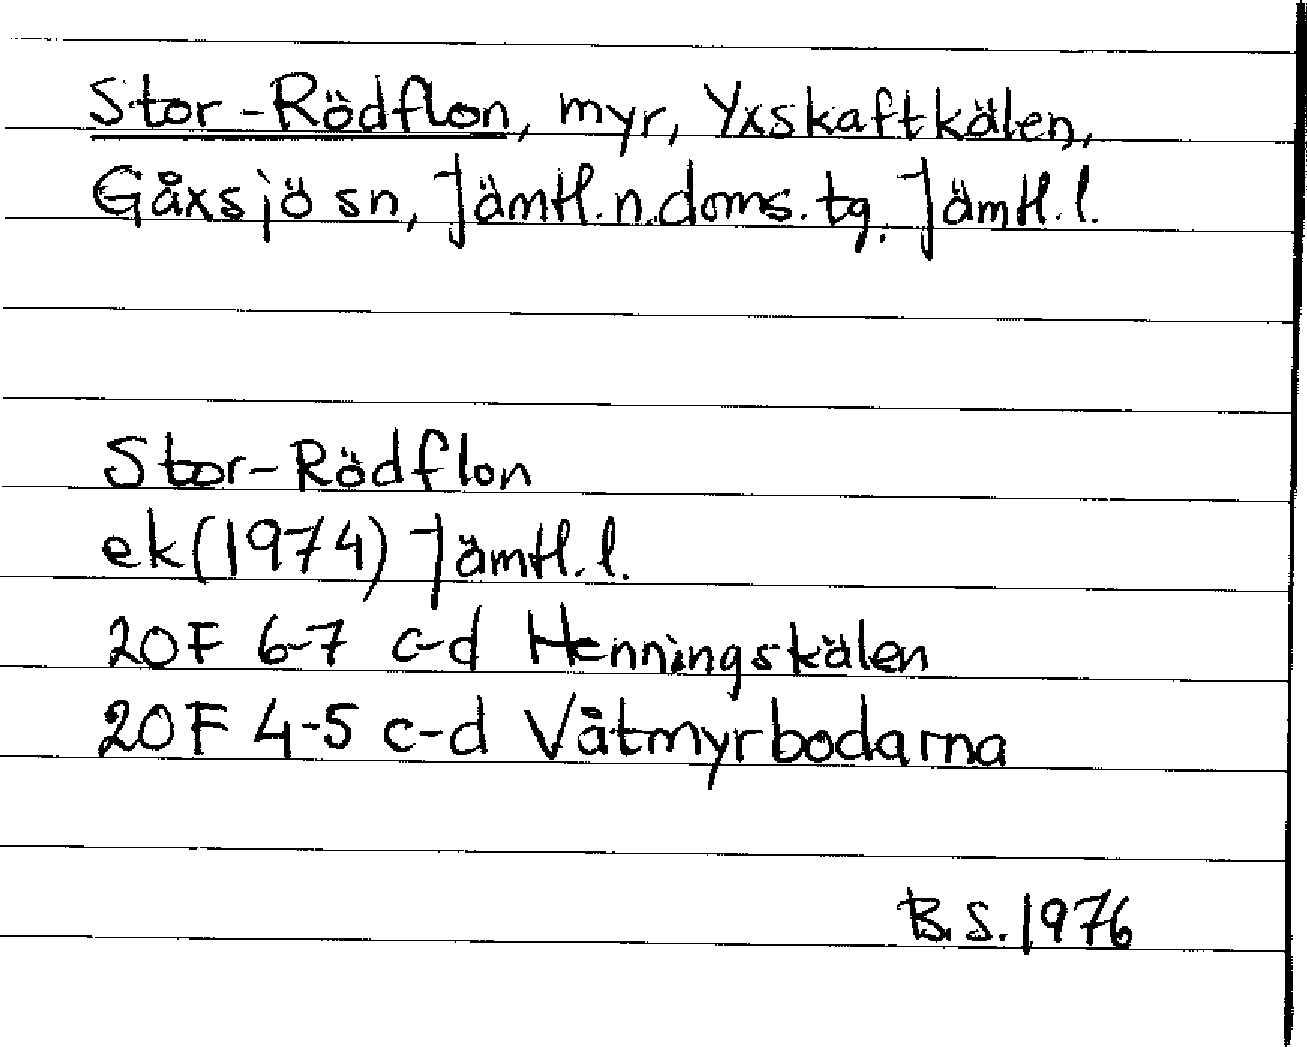 Stor-Rödflon, myr, Yxskaftkälen,
Gåxsjö sn, Jämtl.n.doms.tg. Jämtl.l.
Stor-Rödflon
ek(1974) Jämtl.l.
20F 6-7 c-d Henningskälen
20F 4-5 c-d Våtmyrbodarna
B.S. 1976